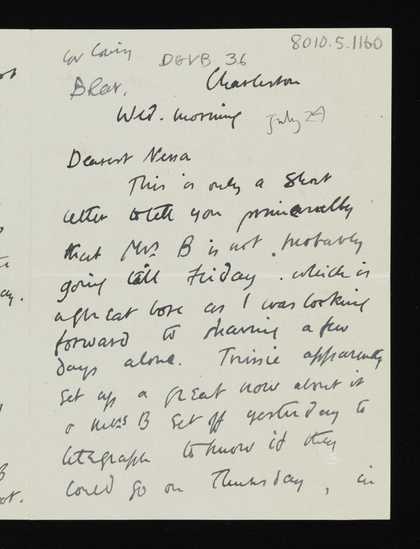 8010.5.1160
DGVB 36
Bear.
Charleston
Wed. morning
July 29
Dearest Nessa
This is only a short
letter to tell you primarily
that Mrs B is not probably
going till Friday. which is
a great bore as I was looking
forward to having a few
days alone. Trissie apparently
set up a great row about it
& Mrs B set off yesterday to
telegraph to know if they
could go on Thursday, in
ay.
B
ot.